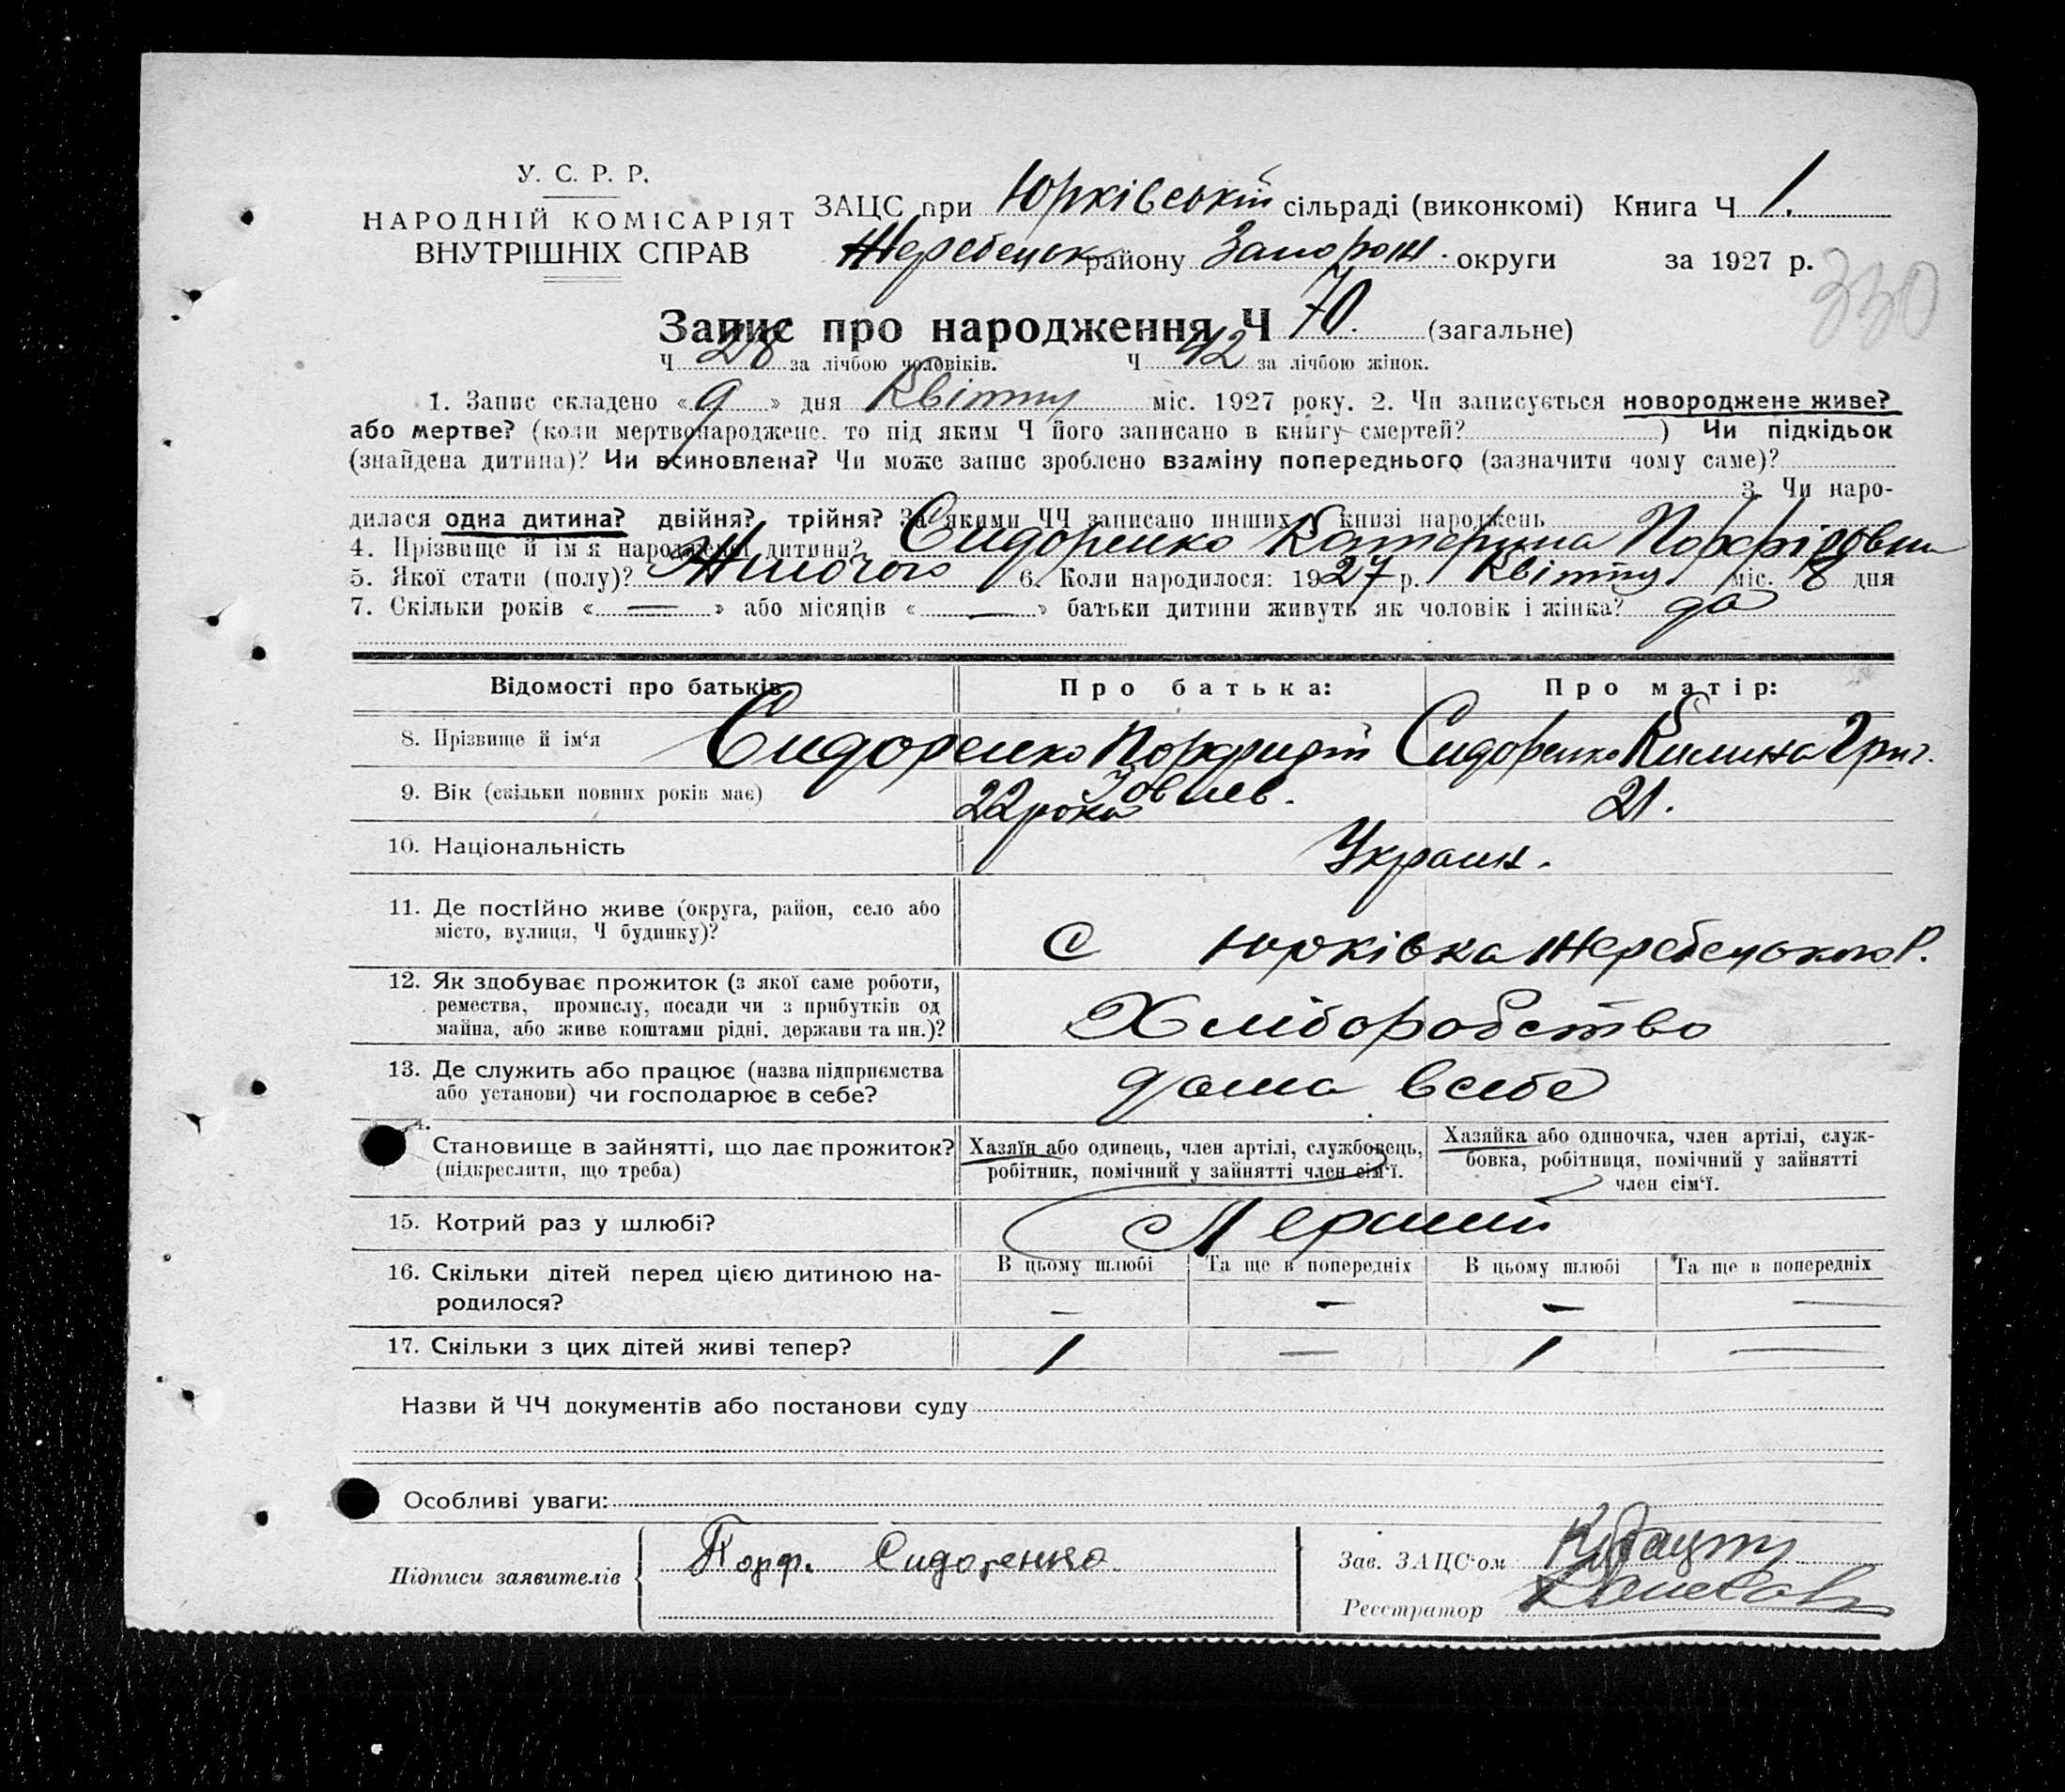 У. С. Р. Р.
НАРОДНІЙ КОМІСАРІЯТ
ВНУТРІШНІХ СПРАВ
ЗАЦС при Юрківській сільраді (виконкомі) Книга Ч 1.
Жеребецьк району Запорож. округи за 1927 р.
330
Запис про народження Ч 70. (загальне)
Ч 28 за лічбою чоловіків. Ч 42 за лічбою жінок.
1. Запис складено «9» дня Квітня міс. 1927 року. 2. Чи записується новороджене живе?
або мертве? (коли мертвонароджене, то під яким Ч його записано в книгу смертей? ) Чи підкідьок
(знайдена дитина)? Чи всиновлена? Чи може запис зроблено взаміну попереднього (зазначити чому саме)?
3. Чи наро-
дилася одна дитина? двійня? трійня? За якими ЧЧ записано инших у книзі народжень
4. Прізвище й ім'я народженої дитини? Сидоренко Катерина Порфіровна
5. Якої стати (полу)? Жіночого 6. Коли народилося: 1927 р. Квітня міс. 8 дня
7. Скільки років «—» або місяців «—» батьки дитини живуть як чоловік і жінка? да
Відомості про батьків Про батька: Про матір:
8. Прізвище й ім'я Сидоренко Порфирій Сидоренко Килина Григ.
9. Вік (скільки повних років має) 22 роки 21.
10. Національність Украин.
11. Де постійно живе (округа, район, село або
місто, вулиця, Ч будинку)?
С Юрківка Жеребецького Р.
12. Як здобуває прожиток (з якої саме роботи,
ремества, промислу, посади чи з прибутків од
майна, або живе коштами рідні, держави та ин.)?
Хліборобство
13. Де служить або працює (назва підприємства
або установи) чи господарює в себе?
дома в себе
4.
Становище в зайнятті, що дає прожиток?
(підкреслити, що треба)
Хазяїн або одинець, член артілі, службовець,
робітник, помічний у зайнятті член сім'ї.
Хазяйка або одиночка, член артілі, служ-
бовка, робітниця, помічний у зайнятті
член сім'ї.
15. Котрий раз у шлюбі? Перший
16. Скільки дітей перед цією дитиною на-
родилося?
В цьому шлюбі Та ще в попередніх В цьому шлюбі Та ще в попередніх
— — — —
17. Скільки з цих дітей живі тепер? 1 — 1 —
Назви й ЧЧ документів або постанови суду
Особливі уваги:
Підписи заявителів Порф. Сидоренко
Зав. ЗАЦС'ом
Реєстратор